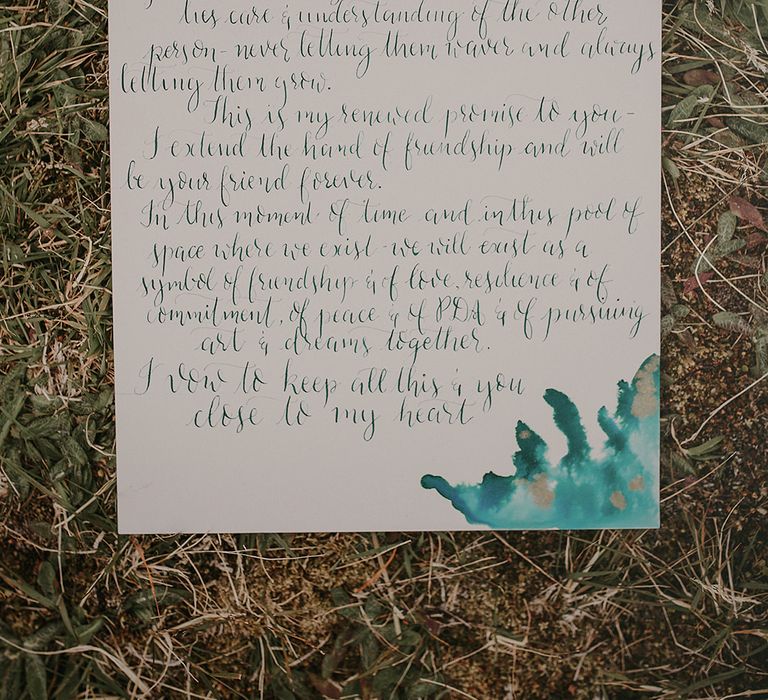 lies care & understanding of the other
person - never letting them waver and always
letting them grow.
This is my renewed promise to you -
I extend the hand of friendship and will
be your friend forever.
In this moment of time and in this pool of
space where we exist - we will exist as a
symbol of friendship & of love, resilience & of
commitment, of peace & of PDA & of pursuing
art & dreams together.
I vow to keep all this & you
close to my heart